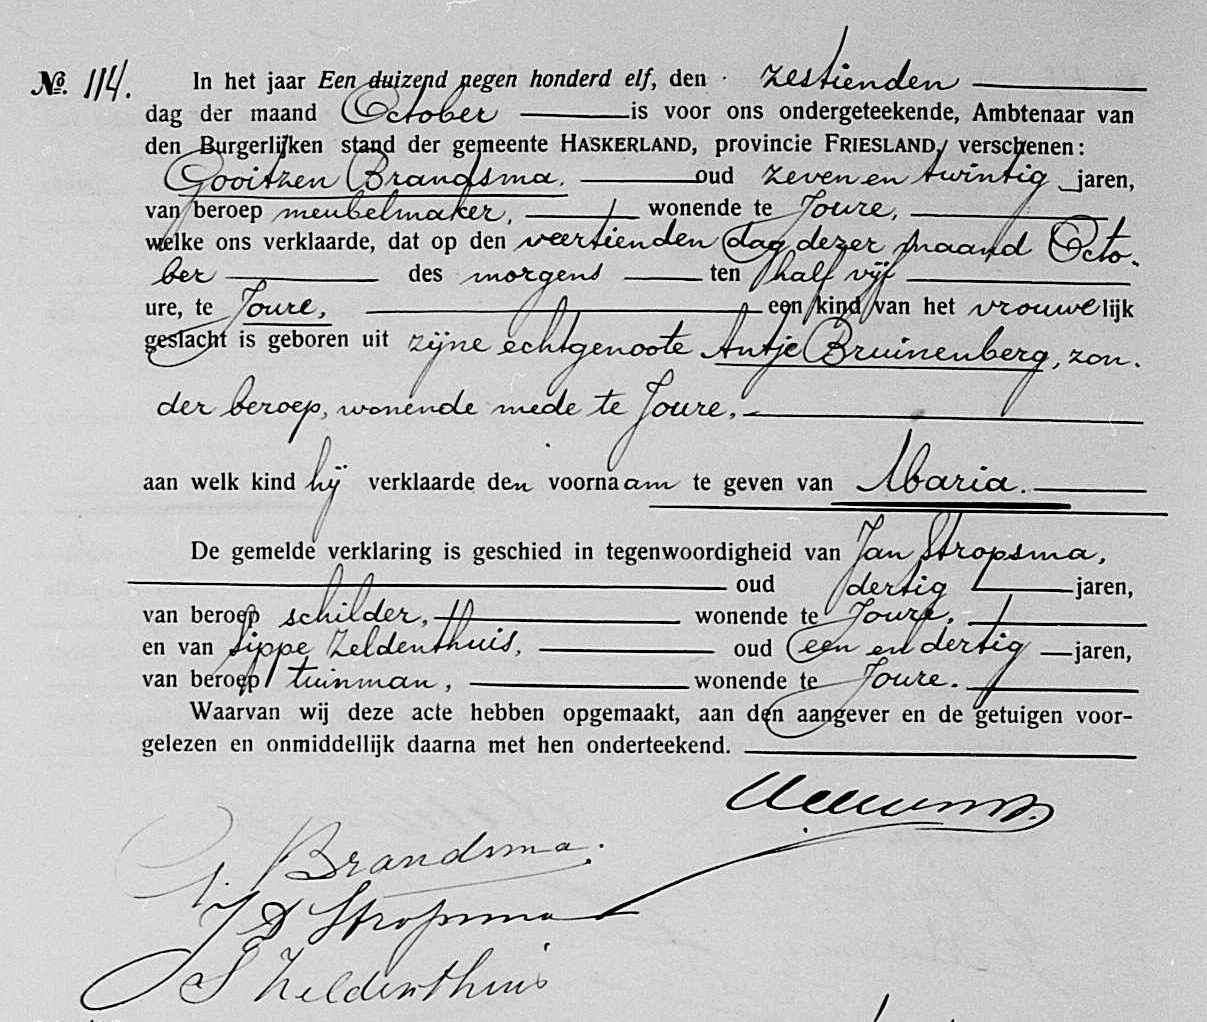 No. 114. In het jaar Een duizend negen honderd elf, den zestienden
dag der maand October is voor ons ondergeteekende, Ambtenaar van
den Burgerlijken stand der gemeente HASKERLAND, provincie FRIESLAND, verschenen:
Gooitzen Brandsma. oud zeven en twintig jaren,
van beroep meubelmaker, wonende te Joure,
welke ons verklaarde, dat op den veertienden dag dezer maand Octo-
ber des morgens ten half vijf
ure, te Joure, een kind van het vrouwelijk
geslacht is geboren uit zijne echtgenoote Antje Bruinenberg, zon-
der beroep, wonende mede te Joure,
aan welk kind hij verklaarde den voornaam te geven van Maria.
De gemelde verklaring is geschied in tegenwoordigheid van Jan Stropsma,
oud dertig jaren,
van beroep schilder, wonende te Joure,
en van Sippe Zeldenthuis, oud een en dertig jaren,
van beroep tuinman, wonende te Joure.
Waarvan wij deze acte hebben opgemaakt, aan den aangever en de getuigen voor-
gelezen en onmiddellijk daarna met hen onderteekend.
G. Brandsma.
J D Stropsma
S Zeldenthuis